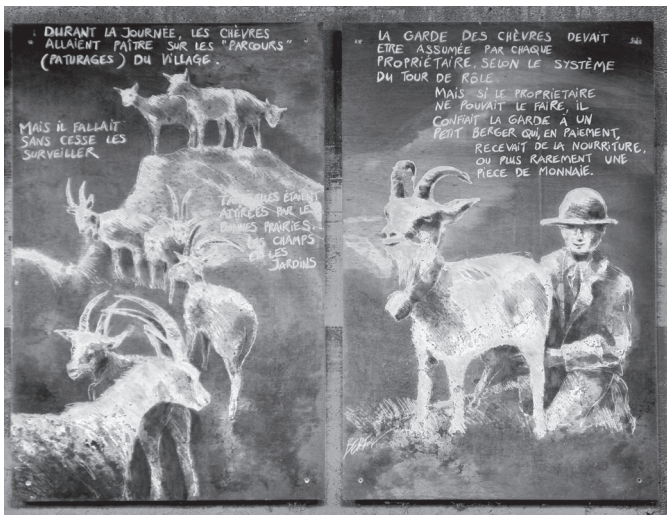 DURANT LA JOURNÉE, LES CHÈVRES
ALLAIENT PAÎTRE SUR LES "PARCOURS"
(PATURAGES) DU VILLAGE.
MAIS IL FALLAIT
SANS CESSE LES
SURVEILLER
ELLES ÉTAIENT
ATTIRÉES PAR LES
BONNES PRAIRIES.
LES CHAMPS
ET LES
JARDINS
LA GARDE DES CHÈVRES DEVAIT
ETRE ASSUMÉE PAR CHAQUE
PROPRIÉTAIRE, SELON LE SYSTÈME
DU TOUR DE RÔLE.
MAIS SI LE PROPRIETAIRE
NE POUVAIT LE FAIRE, IL
CONFIAIT LA GARDE À UN
PETIT BERGER QUI, EN PAIEMENT,
RECEVAIT DE LA NOURRITURE,
OU PLUS RAREMENT UNE
PIECE DE MONNAIE.